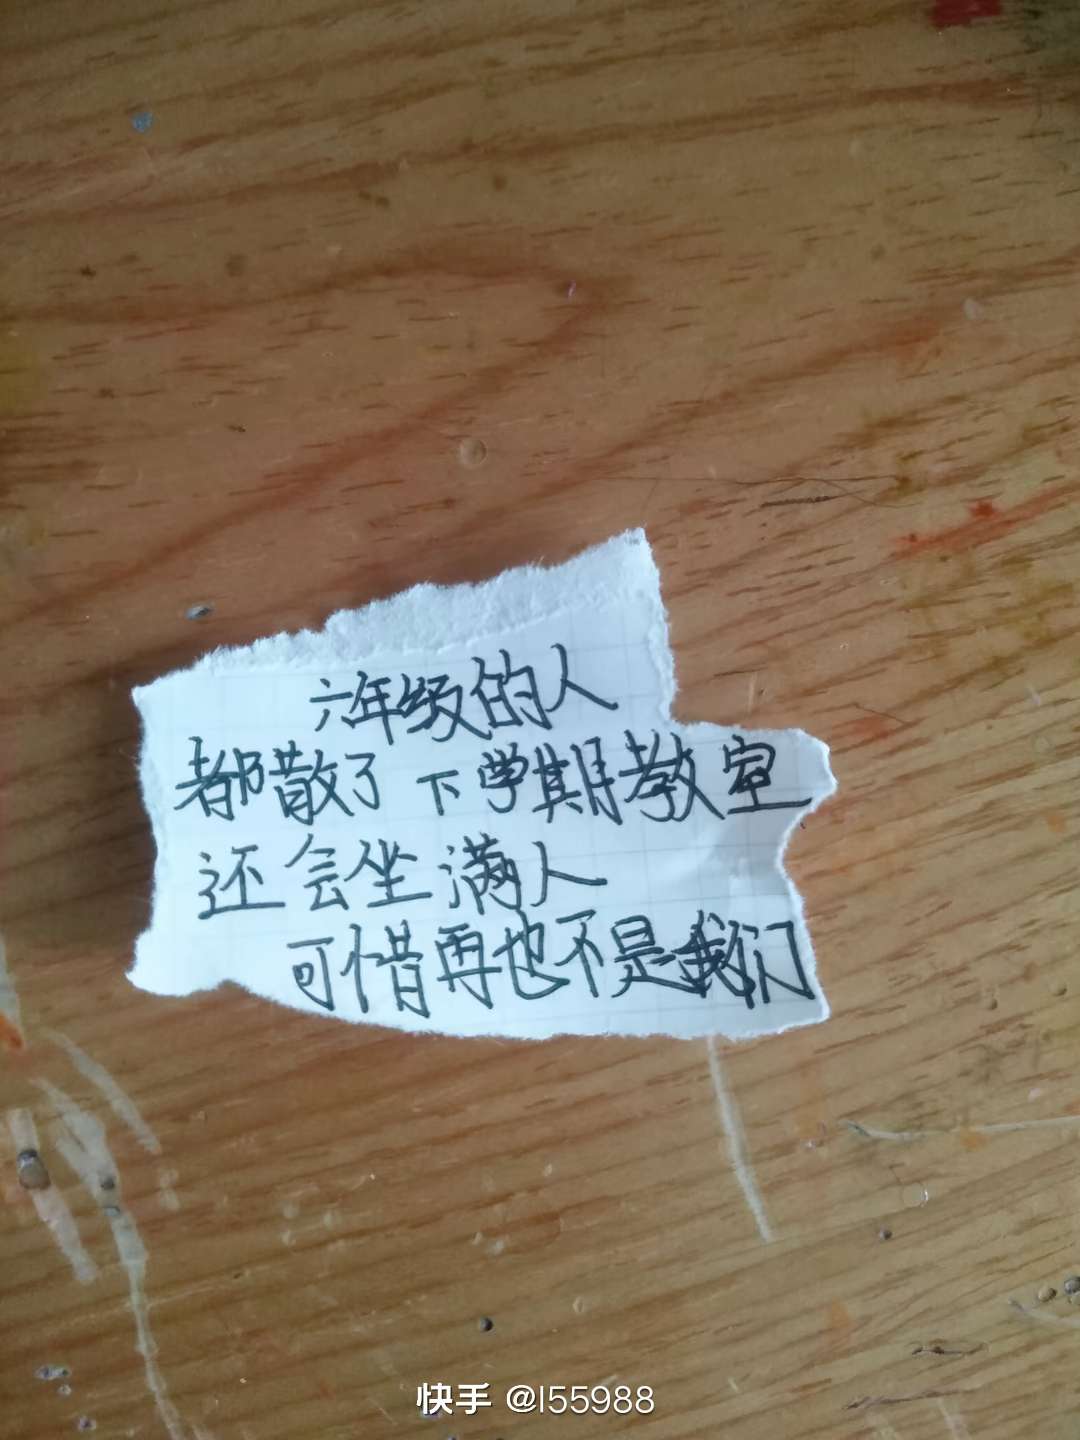 六年级的人
都散了 下学期教室
还会坐满人
可惜再也不是我们
快手 @l55988